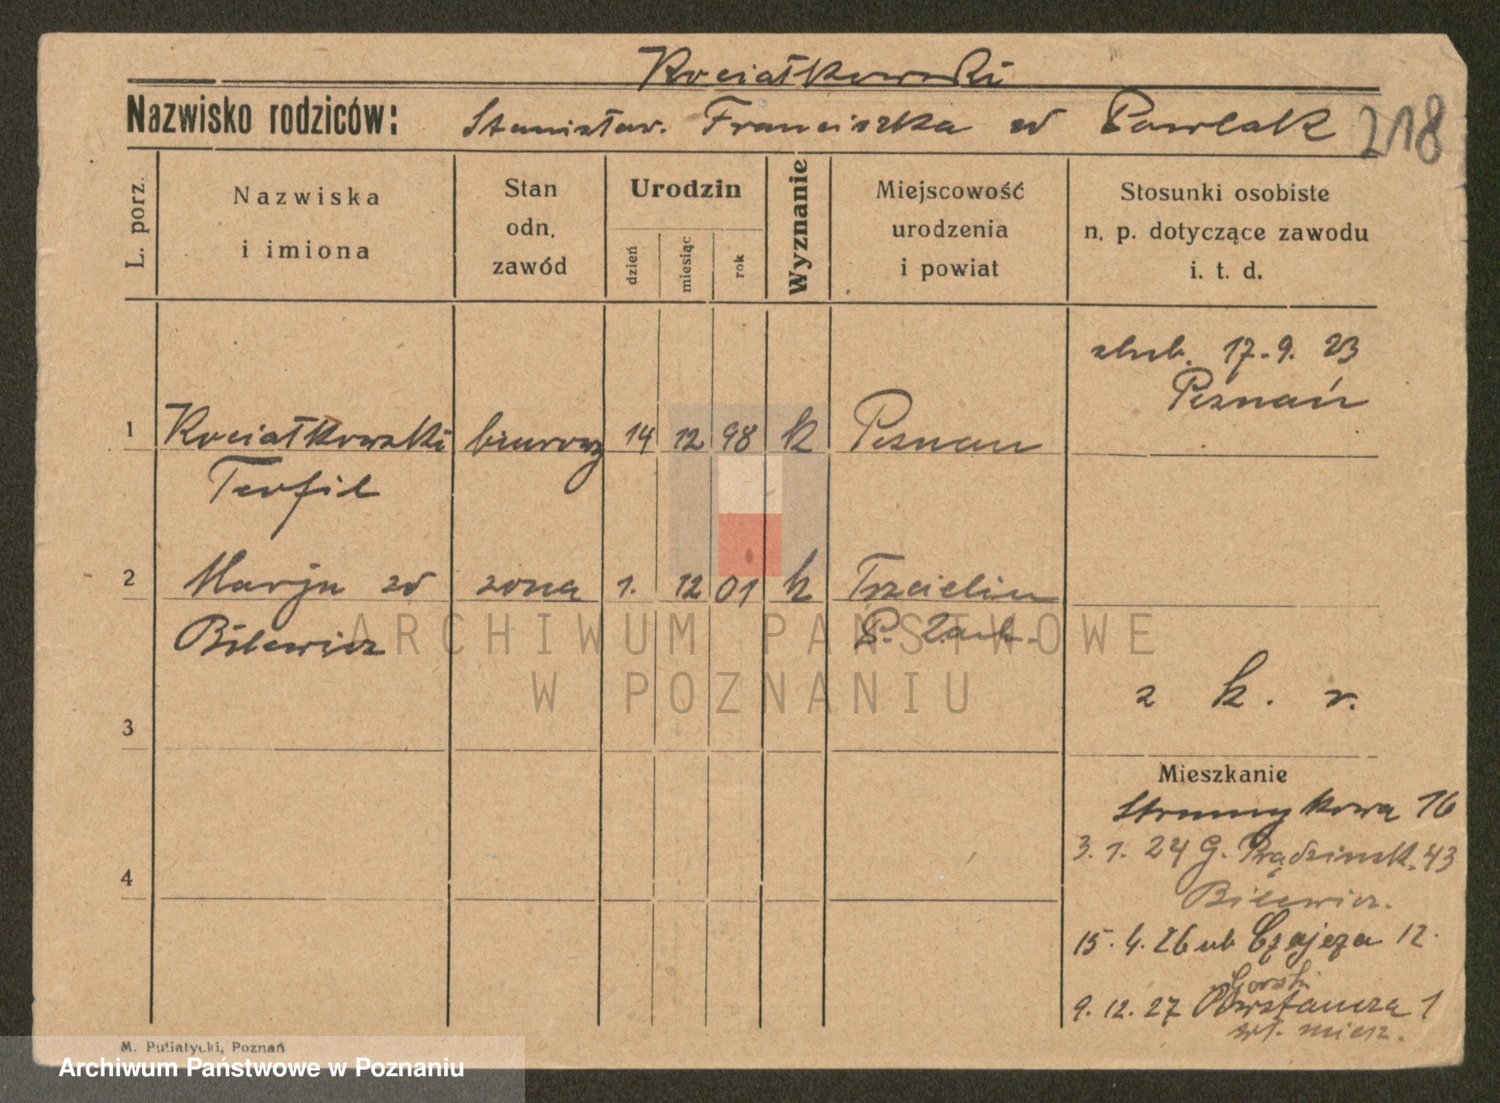 Kociałkowski
Nazwisko rodziców: Stanisław. Franciszka zd Pawlak 218
L. porz.
Nazwiska i imiona
Stan odn. zawód
Urodzin
dzień
miesiąc
rok
Wyznanie
Miejscowość urodzenia i powiat
Stosunki osobiste n. p. dotyczące zawodu i. t. d.
ślub. 17.9.23
Poznań
1 Kociałkowski biurowy 14 12 98 k Poznan
Teofil
2 Marja zd zona 1. 12 01 k Trzcielin
Bilewicz P.
z k. r.
3
Mieszkanie
Strumykowa 16
3.1.24 G. Prądzinsk. 43
4
Bilewicz.
15.4.26 ub Czajcza 12.
Gorski
9.12.27 Powstancza 1
wł. miesz.
M. Putiatycki, Poznań
ARCHIWUM PAŃSTWOWE
W POZNANIU
Archiwum Państwowe w Poznaniu